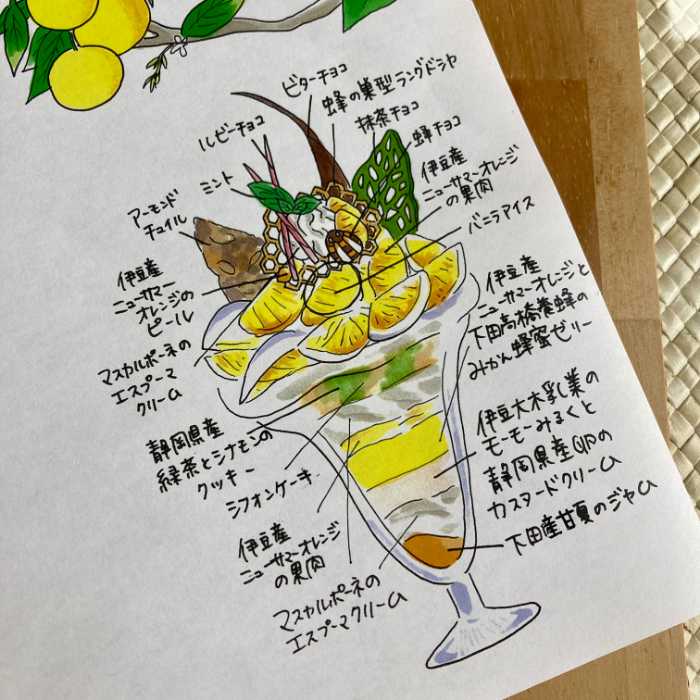 ビターチョコ
蜂の巣型ラングドシャ
ルビーチョコ
抹茶チョコ
蜂チョコ
ミント
伊豆産
ニューサマーオレンジ
の果肉
アーモンド
チュイル
バニラアイス
伊豆産
ニューサマー
オレンジの
ピール
伊豆産
ニューサマーオレンジと
下田高橋養蜂の
みかん蜂蜜ゼリー
マスカルポーネの
エスプーマ
クリーム
静岡県産
緑茶とシナモンの
クッキー
伊豆大木乳業の
モーモーみるくと
静岡県産卵の
カスタードクリーム
シフォンケーキ
下田産甘夏のジャム
伊豆産
ニューサマーオレンジ
の果肉
マスカルポーネの
エスプーマクリーム